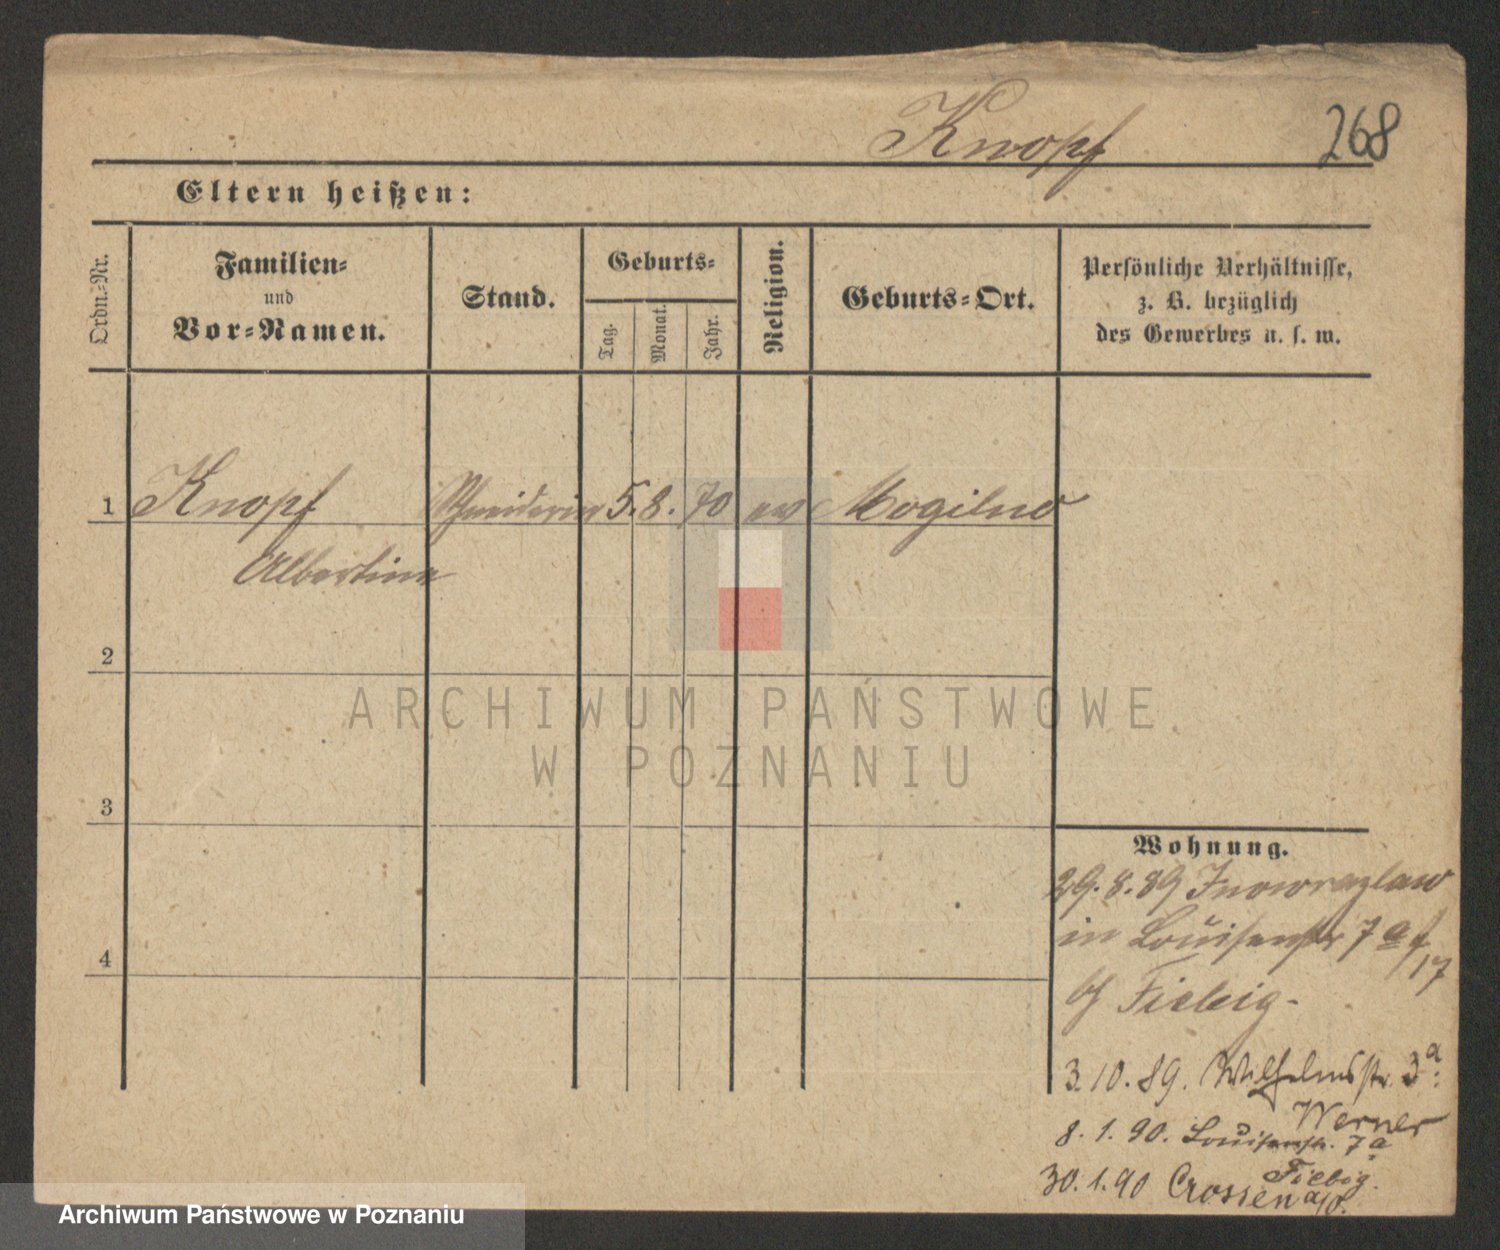 Knopf 268
Eltern heißen:
Ordn.-Nr.
Familien-
und
Vor-Namen.
Stand.
Geburts-
Tag.
Monat.
Jahr.
Religion.
Geburts-Ort.
Persönliche Verhältnisse,
z. B. bezüglich
des Gewerbes u. s. w.
1 Knopf Schneiderin 5. 8. 70 ev Mogilno
Albertine
2
3
4
ARCHIWUM PAŃSTWOWE
W POZNANIU
Wohnung.
29. 8. 89 Inowrazlaw
in Louisenstr 7a
17
b/ Fiebig-
3. 10. 89. Wilhelmsstr. 3a:
Werner
8. 1. 90. Louisenstr. 7a
Fiebig.
30. 1. 90 Crossen a/O.
Archiwum Państwowe w Poznaniu